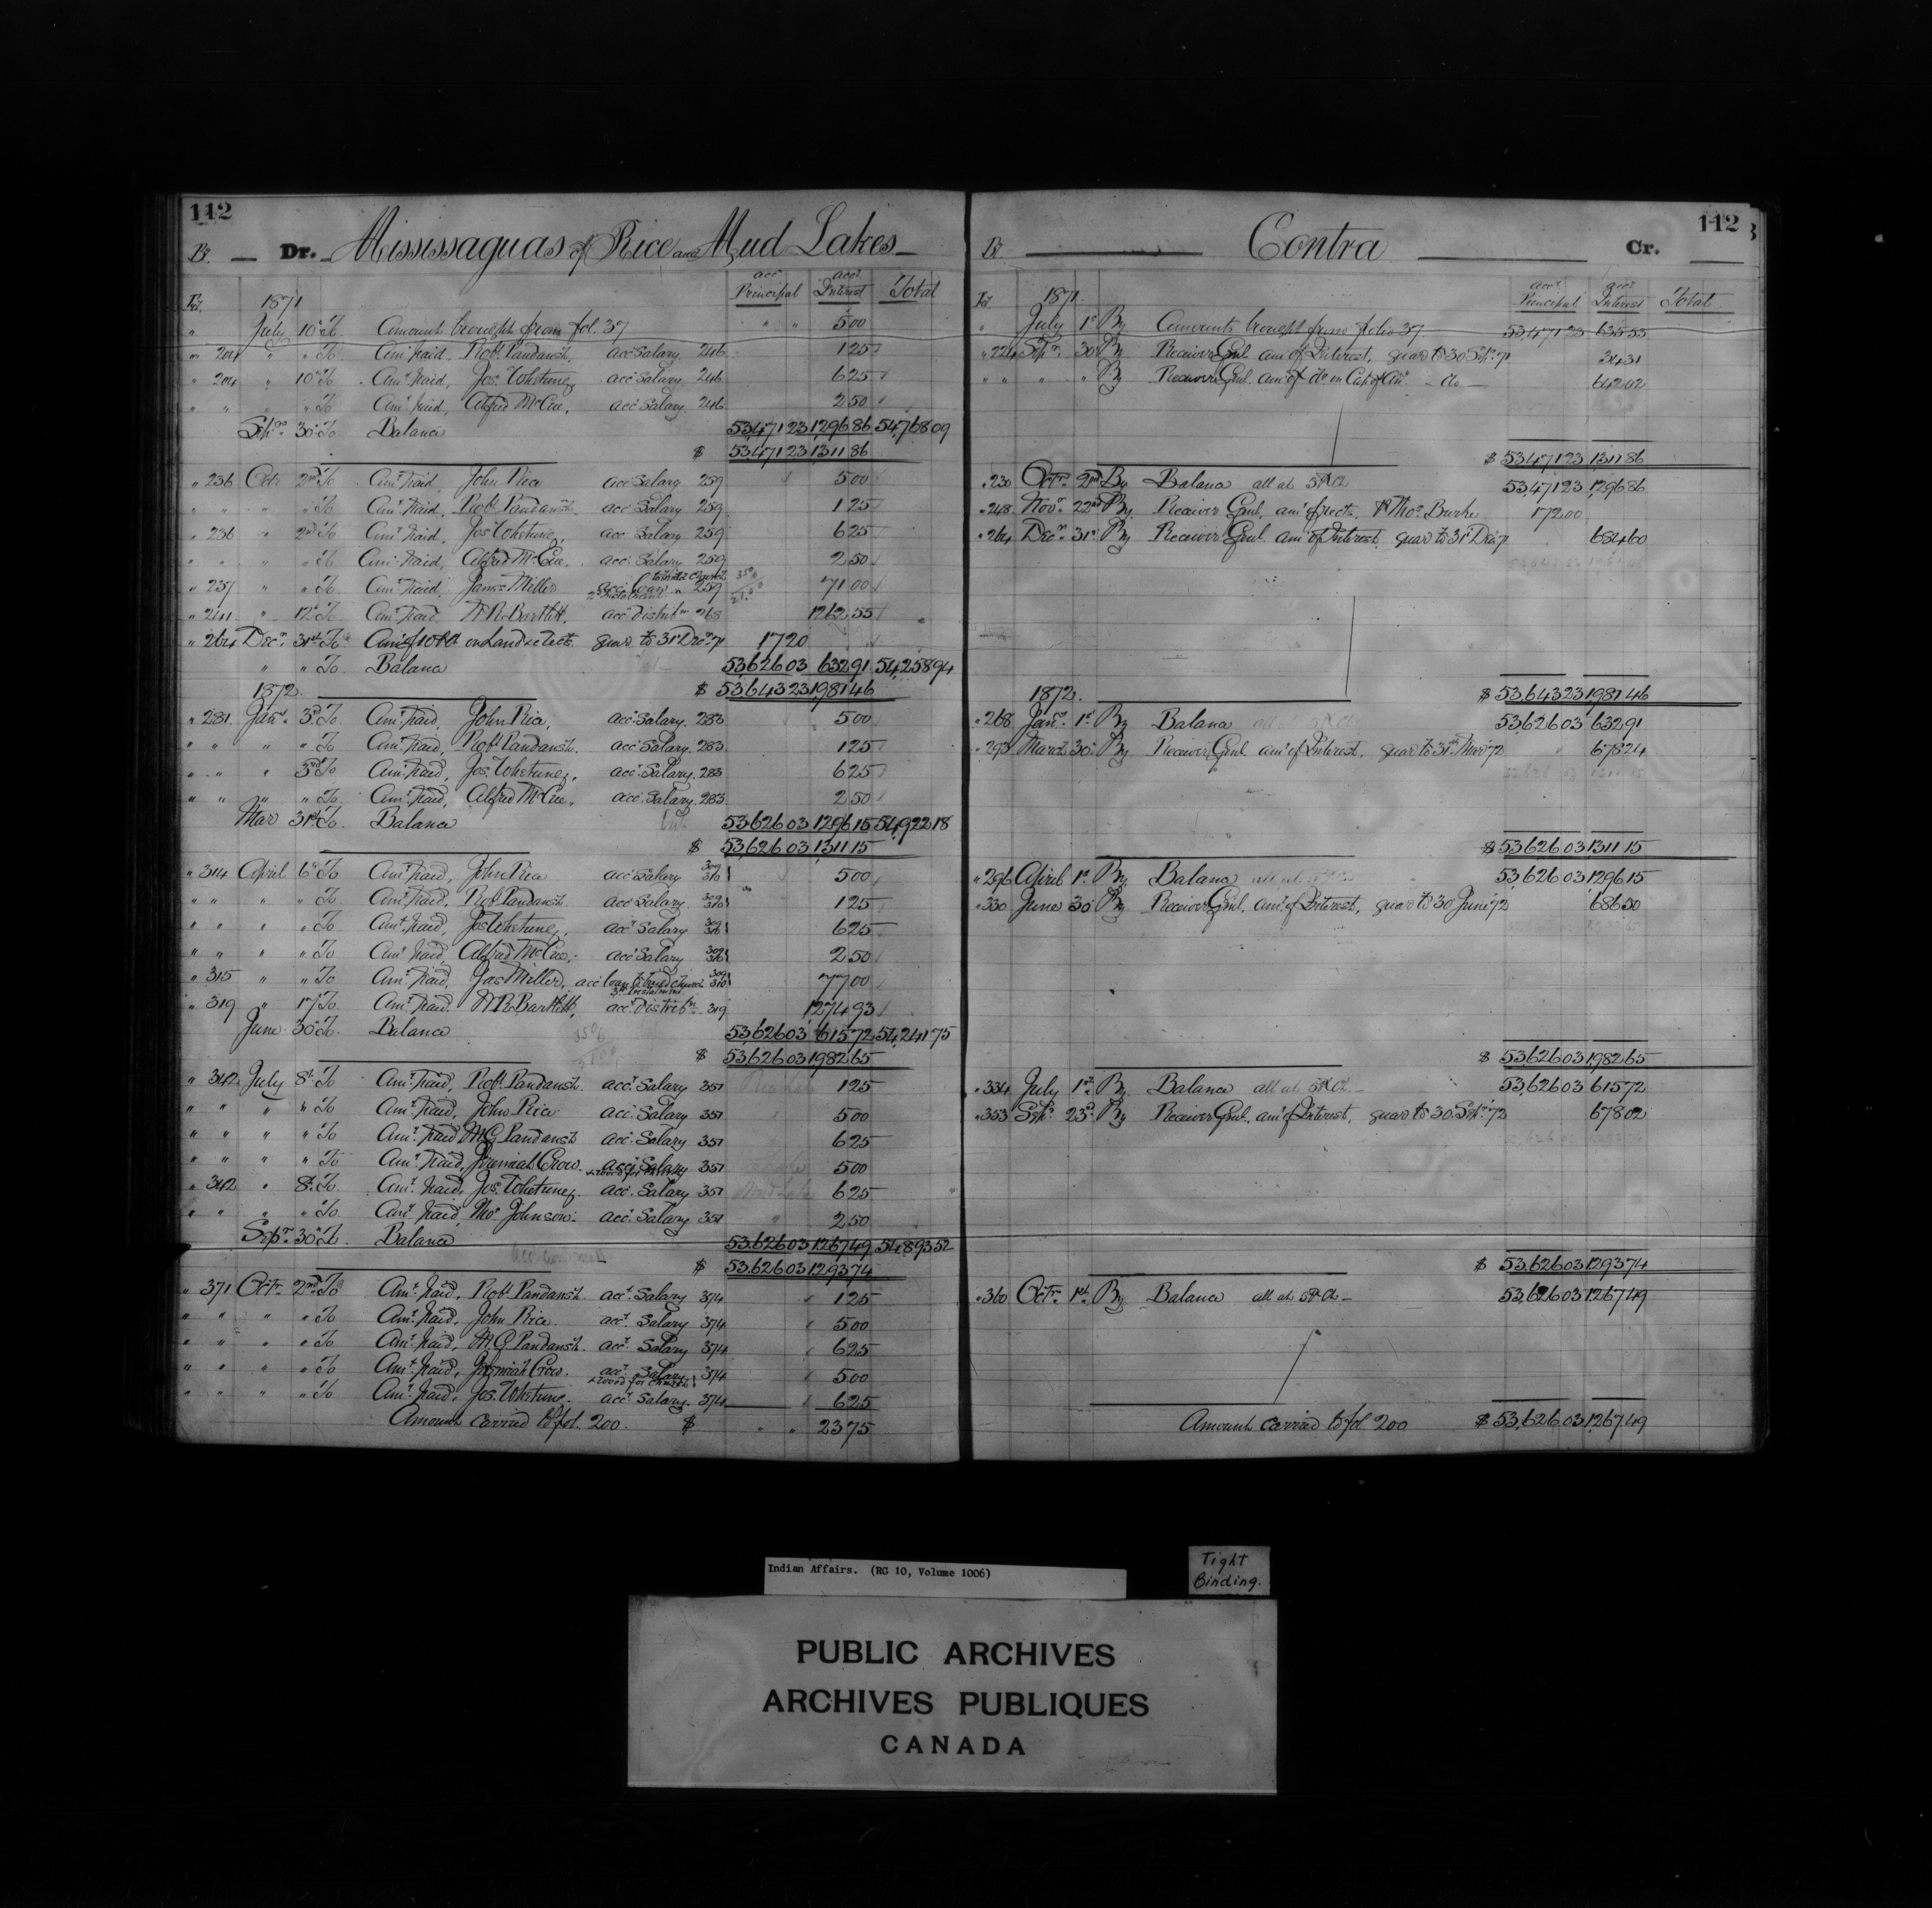 112
Bt. Dr. Mississaguas of Rice and Mud Lakes
acct Principal acct Interest Total
Fol. 1871
" July 10th To Amount brought from fol. 37 " " 5 00
" 204 " " To Amt paid, Robt Pandash, acct Salary 246 1 25
" 204 " 10th To Amt paid, Jos. Whetung acct Salary 246 6 25
" " " " To Amt paid, Alfred McCue, acct Salary 246 2 50
Septr 30th To Balance 53,471 23 1,296 86 54,768 09
$ 53,471 23 1,311 86
" 236 Octr 2nd To Amt Paid, John Rice acct Salary 259 5 00
" " " " To Amt Paid, Robt Pandash acct Salary 259 1 25
" 236 " 2nd To Amt Paid, Jos. Whetung, acct Salary 259 6 25
" " " " To Amt Paid, Alfred McCue. acct Salary 259 2 50
" 237 " " To Amt Paid, James Miller acct Loan to build Church 2nd Instalment 259 71 00
" 241 " 12th To Amt Paid W.R. Bartlett, acct Distribn 268 1262 55
" 264 Decr 31st To Amt of 10 P Ct on Land collects quar to 31st Decr 71 17 20
" " To Balance 53,626 03 632 91 54,258 94
$ 53,643 23 1,981 46
1872
" 281 Jany 3rd To Amt Paid, John Rice, acct Salary 283 5 00
" " " " To Amt Paid, Robt Pandash. acct Salary. 283 1 25
" " " 3rd To Amt Paid, Jos. Whetung, acct Salary. 283 6 25
" " " " To Amt Paid, Alfred McCue, acct Salary. 283 2 50
Mar 31st To Balance 53,626 03 1296 15 54,922 18
$ 53,626 03 1,311 15
" 314 April 6th To Amt Paid, John Rice acct Salary 309 310 5 00
" " " " To Amt Paid, Robt Pandash acct Salary 309 310 1 25
" " " " To Amt Paid, Jos Whetung, acct Salary 309 310 6 25
" " " " To Amt Paid, Alfred McCue, acct Salary 309 310 2 50
" 315 " " To Amt Paid, Jas Miller, acct Loan to build church 3rd Instalment 309 310 77 00
" 319 " 17th To Amt Paid. W.R. Bartlett, acct Distribn 319 1,274 93
June 30th To Balance 53,626 03 615 72 54,241 75
$ 53,626 03 1,982 65
" 342 July 8th To Amt Paid, Robt Pandash acct Salary 351 1 25
" " " " To Amt Paid, John Rice acct Salary 351 5 00
" " " " To Amt Paid M.G. Pandash acct Salary 351 6 25
" " " " To Amt Paid, Jeremiah Crow acct Salary + wood for church 351 5 00
" 342 " 8th To Amt Paid, Jos. Whetung. acct Salary 351 6 25
" " " " To Amt Paid, Thos Johnson. acct Salary 351 2 50
Septr 30th To Balance 53,626 03 1,267 49 54,893 52
$ 53,626 03 1,293 74
" 371 Octr 2nd To Amt Paid, Robt Pandash acct Salary 374 1 25
" " " " To Amt Paid, John Rice. acct Salary 374 5 00
" " " " To Amt Paid, M.G. Pandash acct Salary 374 6 25
" " " " To Amt Paid, Jeremiah Crow. acct Salary + wood for church 374 5 00
" " " " To Amt Paid, Jos. Whetung. acct Salary. 374 6 25
Amount Carried to fol. 200. $ " " 23 75
112
Bt. Contra Cr.
acct Principal acct Interest Total
Fol. 1871
" July 1st By Amounts brought from folio 37 53,471 23 635 53
" 224 Septr 30th By Receiver Genl. amt of Interest, quar to 30 Septr 71 34 31
" " " " By Receiver Genl. amt of do on Cap of Ann. - do - 642 02
$ 53,471 23 1311 86
" 230 Octr 2nd By Balance all at 5 P Ct 53,471 23 1,296 86
" 248 Novr 22nd By Receiver Genl, amt of rects, P Thos Burke 172 00
" 264 Decr 31st By Receiver Genl. amt of Interest, quar to 31st Decr 71 684 60
$ 53,643 23 1,981 46
1872
" 268 Jany 1st By Balance all at 5 P Ct 53,626 03 632 91
" 293 March 30th By Receiver Genl amt of Interest, quar to 31st Mar 72 678 24
$ 53,626 03 1311 15
" 296 April 1st By Balance all at 5 P Ct 53,626 03 1,296 15
" 330 June 30 By Receiver Genl, amt of Interest, quar to 30 June 72 686 50
$ 53,626 03 1,982 65
" 334 July 1st By Balance all at 5 P Ct 53,626 03 615 72
" 353 Septr 23rd By Receiver Genl, amt of Interest, quar to 30. Septr 72 678 02
$ 53,626 03 1,293 74
" 360 Octr 1st By Balance all at 5 P Ct 53,626 03 1,267 49
Amount Carried to fol. 200 $ 53,626 03 1,267 49
Indian Affairs. (RG 10, Volume 1006)
Tight
Binding.
PUBLIC ARCHIVES
ARCHIVES PUBLIQUES
CANADA